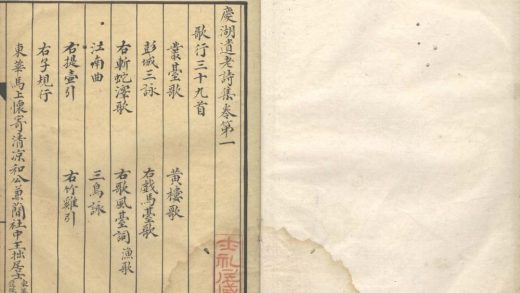 慶湖遺老詩集卷第一
歌行三十九首
叢臺歌 黃樓歌
彭城三詠 右戲馬臺歌
右斬蛇澤歌 右歌風臺詞 漁歌
江南曲 三鳥詠
右提壺引 右竹雞引
右子規行
東華馬上懷寄清涼和公兼簡社中王拙居士